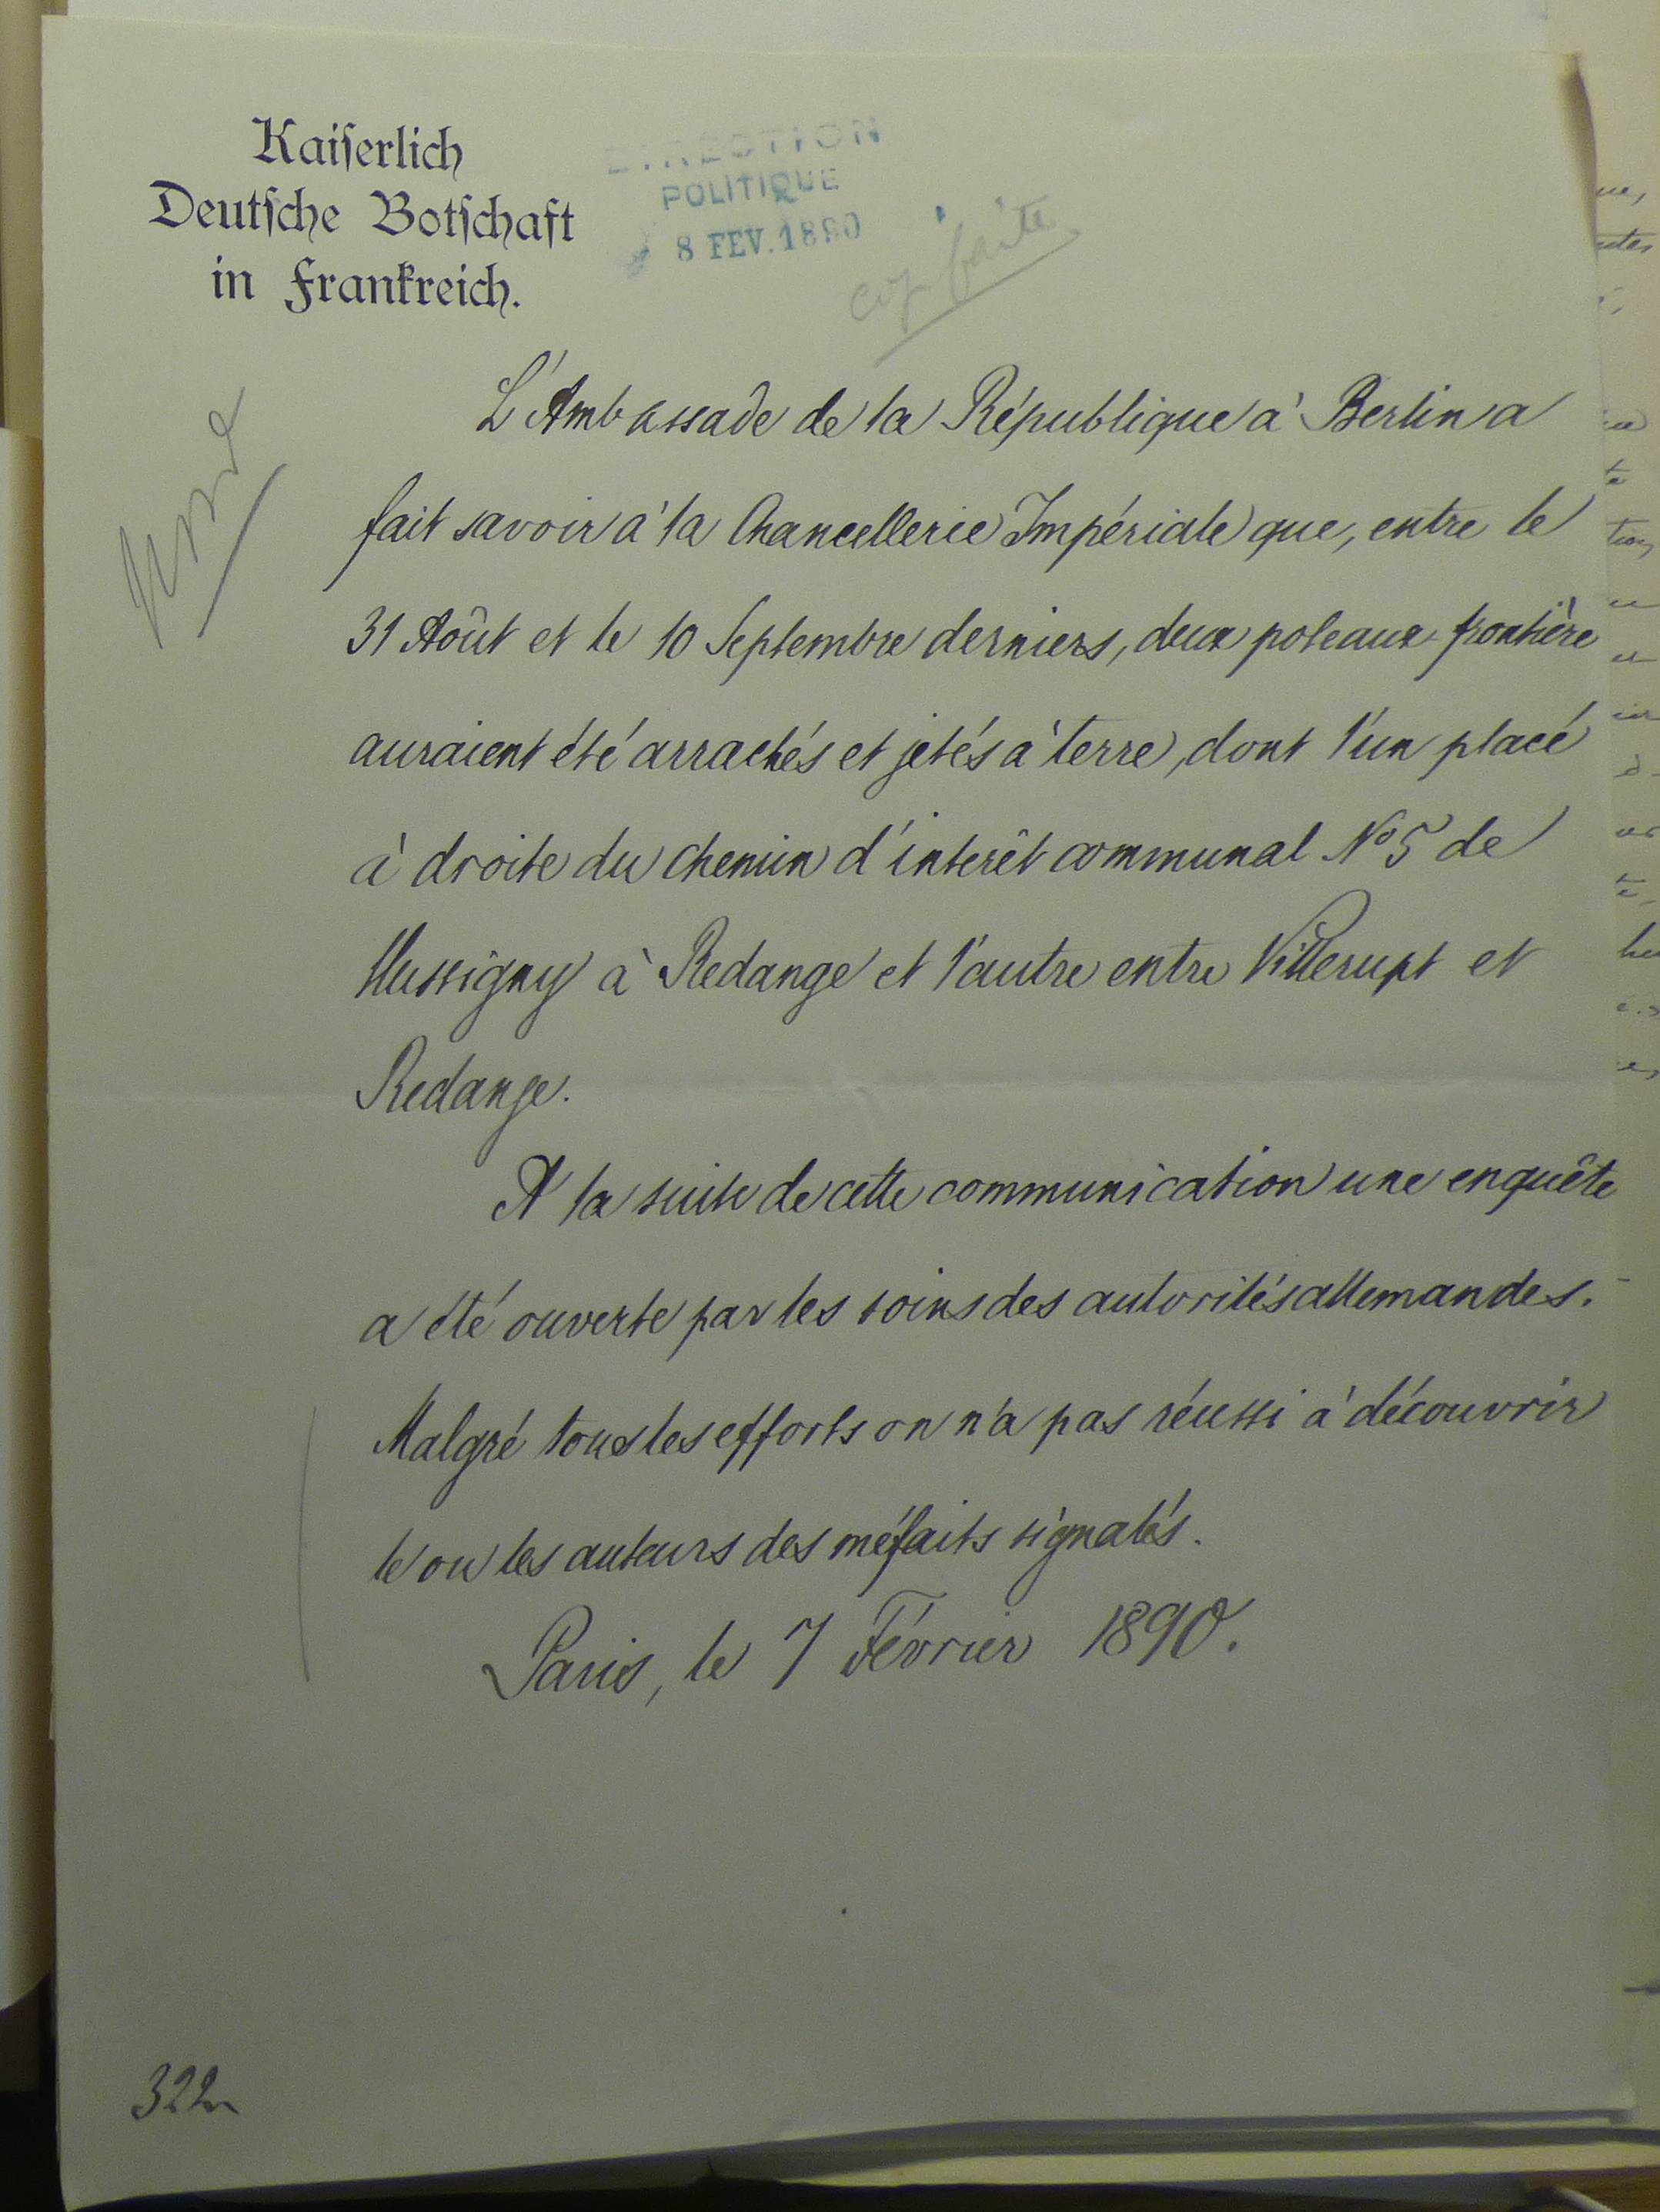 Kaiſerlich
Deutſche Botſchaft
in Frankreich.
DIRECTION
POLITIQUE
8 FEV. 1890
copie faite
L'Ambassade de la République à Berlin a
fait savoir à la Chancellerie Impériale que, entre le
31 Août et le 10 Septembre derniers, deux poteaux-frontière
auraient été arrachés et jetés à terre, dont l'un placé
à droite du chemin d'interêt communal No 5 de
Hussigny à Redange et l'autre entre Villerupt et
Redange.
A la suite de cette communication une enquête
a été ouverte par les soins des autorités allemandes.
Malgré tous les efforts on n'a pas réussi à découvrir
le ou les auteurs des méfaits signalés.
Paris, le 7 Février 1890.
322